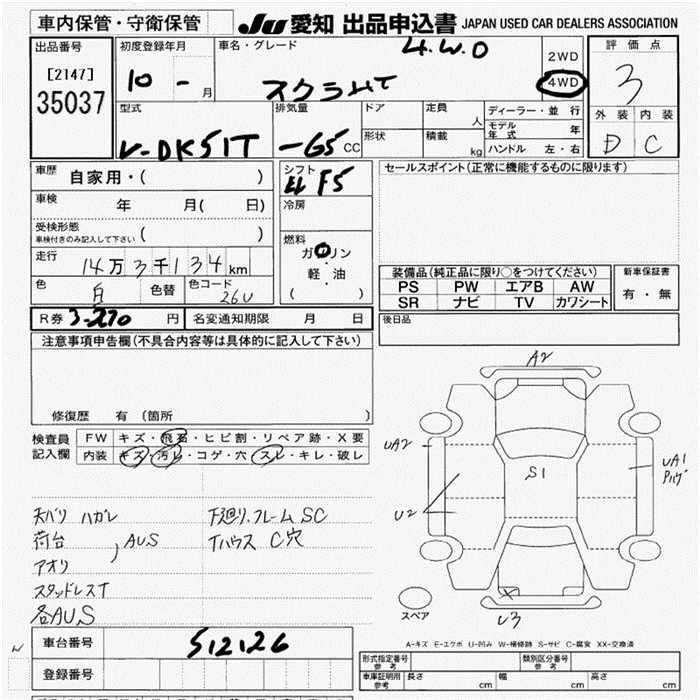 車内保管・守衛保管
JU 愛知 出品申込書 JAPAN USED CAR DEALERS ASSOCIATION
出品番号
[2147]
35037
初度登録年月
10 - 月
車名・グレード
4.W.D
スクラムT
2WD
4WD
評価点
3
外装 内装
D C
型式
V-DK51T
排気量
-65 CC
ドア
形状
定員 人
積載 kg
ディーラー・並行
モデル年式 年
ハンドル 左・右
車歴 自家用・( )
車検 年 月( 日)
受検形態
車検付きのみ記入して下さい ( )
走行 14万3千134km
色 白 色替 色コード 26U
シフト F5
冷房
燃料
ガソリン
軽・油
( )
セールスポイント(正常に機能するものに限ります)
装備品(純正品に限り○をつけてください)
PS PW エアB AW
SR ナビ TV カワシート
新車保証書
有・無
R券 3-270 円 名変通知期限 月 日
後日品
注意事項申告欄(不具合内容等は具体的に記入して下さい)
修復歴 有 (箇所 )
検査員記入欄
FW キズ・飛石・ヒビ割・リペア跡・X要
内装 キズ・汚レ・コゲ・穴・スレ・キレ・破レ
天バリ ハガレ
荷台 , AUS
アオリ
スタッドレスT
各AUS
下廻り.フレームSC
Tハウス C穴
A2
UA2
U2
S1
UA1
パハゲ
X
U3
スペア
A-キズ E-エクボ U-凹み W-補修跡 S-サビ C-腐食 XX-交換済
車台番号 512126
登録番号
形式指定番号 参考
類別区分番号 参考
車庫証明用 参考 長さ cm 幅 cm 高さ cm